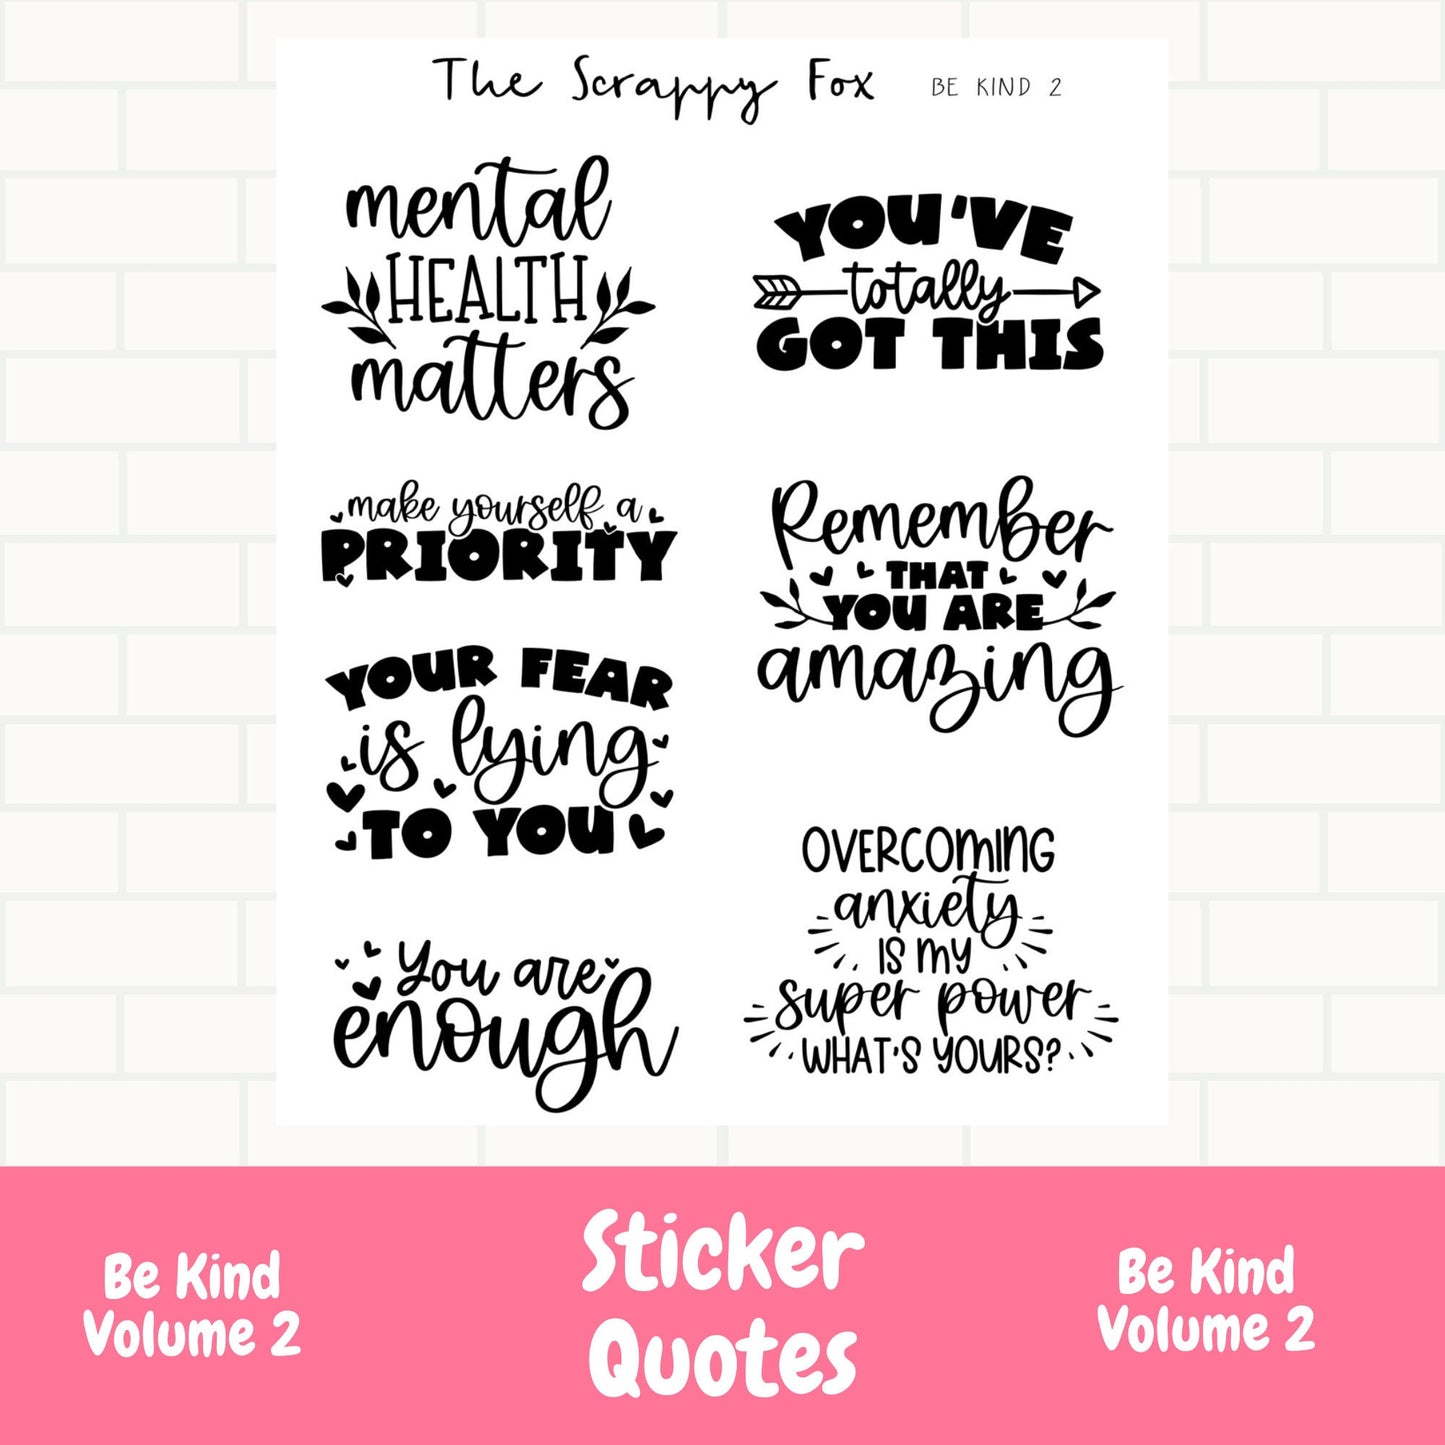 The Scrappy Fox BE KIND 2
mental
HEALTH
matters
YOU'VE
totally
GOT THIS
make yourself a
PRIORITY
Remember
THAT
YOU ARE
amazing
YOUR FEAR
is lying
TO YOU
OVERCOMING
anxiety
IS MY
super power
WHAT'S YOURS?
You are
enough
Be Kind
Volume 2
Sticker
Quotes
Be Kind
Volume 2